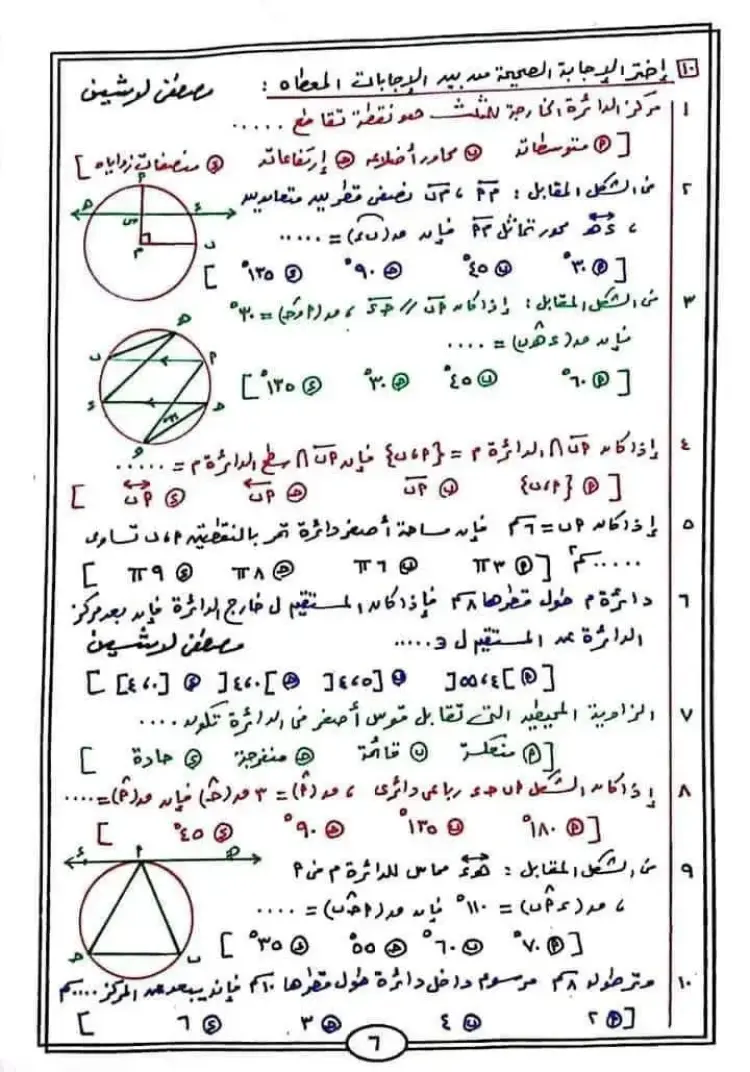 ١٠ إختر الإجابة الصحيحة من بين الإجابات المعطاه : مصطفى لاوشين
١ مركز الدائرة الخارجة للمثلث هو نقطة تقاطع .....
[ ⓟ متوسطاته ⓤ محاور أضلاعه ⓗ إرتفاعاته ⓢ منصفات زواياه ]
٢ من الشكل المقابل : م‌P ، م‌ب نصفى قطرين متعامدين
، دھ محور تماثل م‌P فإن مد(بد) = .....
[ P ٣٠° ب ٤٥° ح ٩٠° د ١٣٥° ]
٣ من الشكل المقابل : إذا كان Pب // حد ، مد(Pوح) = ٣٠°
فإن مد(دھب) = ....
[ P ٦٠° ب ٤٥° ح ٣٠° د ١٣٥° ]
٤ إذا كان Pب ∩ الدائرة م = {P ، ب} فإن Pب ∩ سطح الدائرة م = .....
[ P {P ، ب} ب Pب ح Pب د Pب ]
٥ إذا كان Pب = ٦ سم فإن مساحة أصغر دائرة تمر بالنقطتين P ، ب تساوى
..... سم٢ [ P ٣π ب ٦π ح ٨π د ٩π ]
٦ دائرة م طول قطرها ٨ سم فإذا كان المستقيم ل خارج الدائرة فإن بعد مركز
الدائرة عن المستقيم ل ∈ ..... مصطفى لاوشين
٧ الزاوية المحيطية التى تقابل قوس أصغر فى الدائرة تكون ....
[ P منعكسة ب قائمة ح منفرجة د حادة ]
٨ إذا كان الشكل Pبحد رباعى دائرى ، مد(P) = ٣ مد(ح) فإن مد(P) = ....
[ P ١٨٠° ب ١٣٥° ح ٩٠° د ٤٥° ]
٩ من الشكل المقابل : دھ مماس للدائرة م من P
، مد(دPب) = ١١٠° فإن مد(Pحب) = ....
[ P ٧٠° ب ٦٠° ح ٥٥° د ٣٥° ]
١٠ وتر طوله ٨ سم مرسوم داخل دائرة طول قطرها ١٠ سم فإنه يبعد عن المركز .... سم
[ P ٢ ب ٤ ح ٣ د ٦ ]
٦